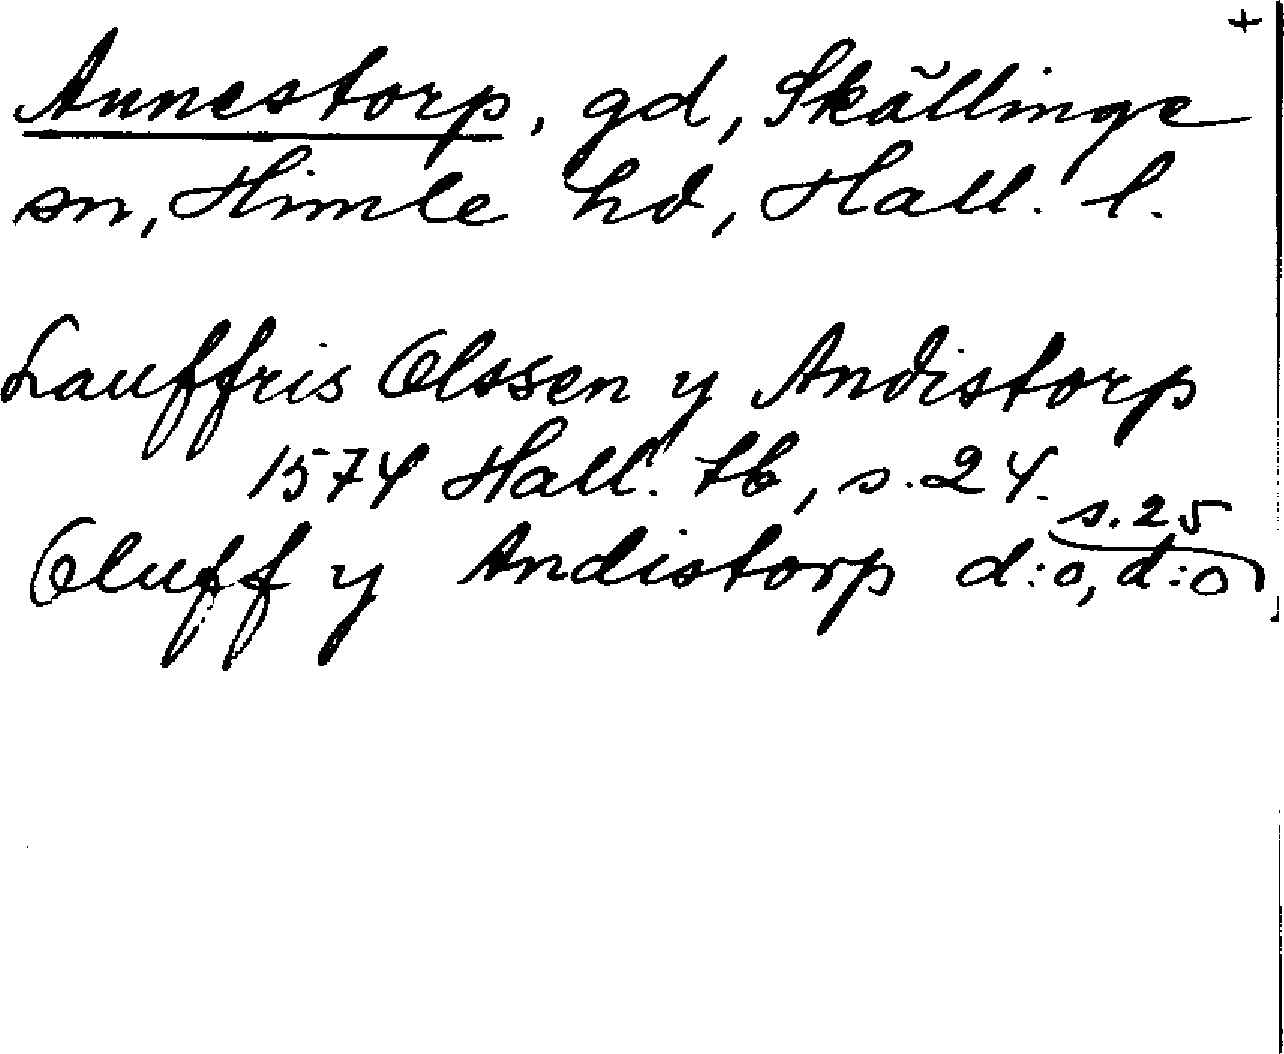 +
Annestorp, gd, Skällinge
sn, Himle hd, Hall. l.
Lauffris Olssen y Andistorp
1574 Hall. tb, s. 24.
s. 25
Oluff y Andistorp d:o, d:o